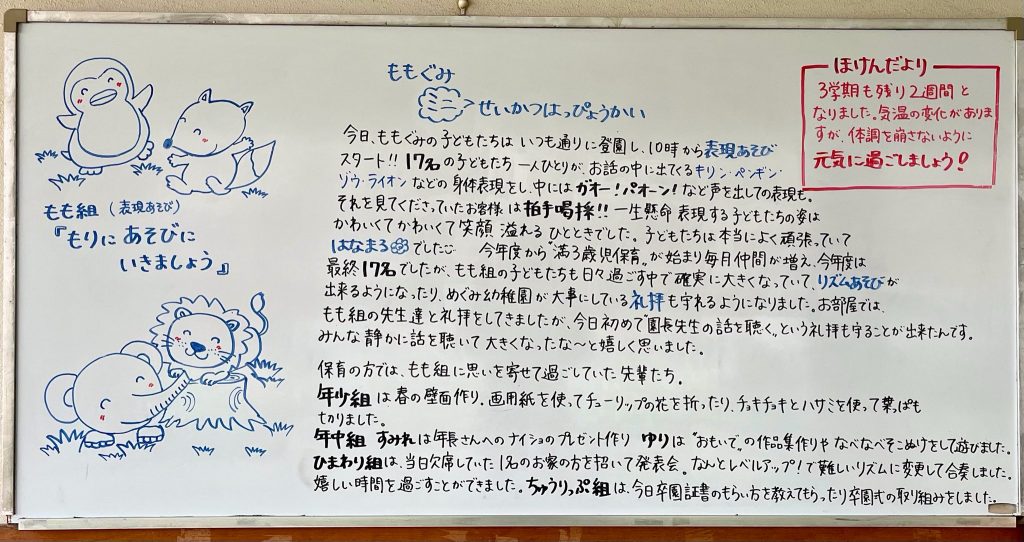 もも組(表現あそび)
『もりにあそびに
いきましょう』
ももぐみ
ミニ せいかつはっぴょうかい
今日、ももぐみの子どもたちはいつも通りに登園し、10時から表現あそび
スタート!!17名の子どもたち一人ひとりが、お話の中に出てくるキリン・ペンギン・
ゾウ・ライオンなどの身体表現をし、中にはガオー!パオーン!など声を出しての表現も。
それを見てくださっていたお客様は拍手喝采!!一生懸命表現する子どもたちの姿は
かわいくてかわいくて笑顔溢れるひとときでした。子どもたちは本当によく頑張っていて
はなまるでした 今年度から"満3歳児保育"が始まり毎月仲間が増え、今年度は
最終17名でしたが、もも組の子どもたちも日々過ごす中で確実に大きくなっていて、リズムあそびが
出来るようになったり、めぐみ幼稚園が大事にしている礼拝も守れるようになりました。お部屋では、
もも組の先生達と礼拝をしてきましたが、今日初めて"園長先生の話を聴く"という礼拝も守ることが出来たんです。
みんな静かに話を聴いて大きくなったな〜と嬉しく思いました。
保育の方では、もも組に思いを寄せて過ごしていた先輩たち。
年少組は春の壁面作り。画用紙を使ってチューリップの花を折ったり、チョキチョキとハサミを使って葉っぱも
切りました。
年中組 すみれは年長さんへのナイショのプレゼント作り ゆりは"おもいで"の作品集作りやなべなべそこぬけをして遊びました。
ひまわり組は、当日欠席していた1名のお家の方を招いて発表会。なんとレベルアップ!で難しいリズムに変更して合奏しました。
嬉しい時間を過ごすことができました。ちゅうりっぷ組は、今日卒園証書のもらい方を教えてもらったり卒園式の取り組みをしました。
ほけんだより
3学期も残り2週間と
なりました。気温の変化がありま
すが、体調を崩さないように
元気に過ごしましょう!